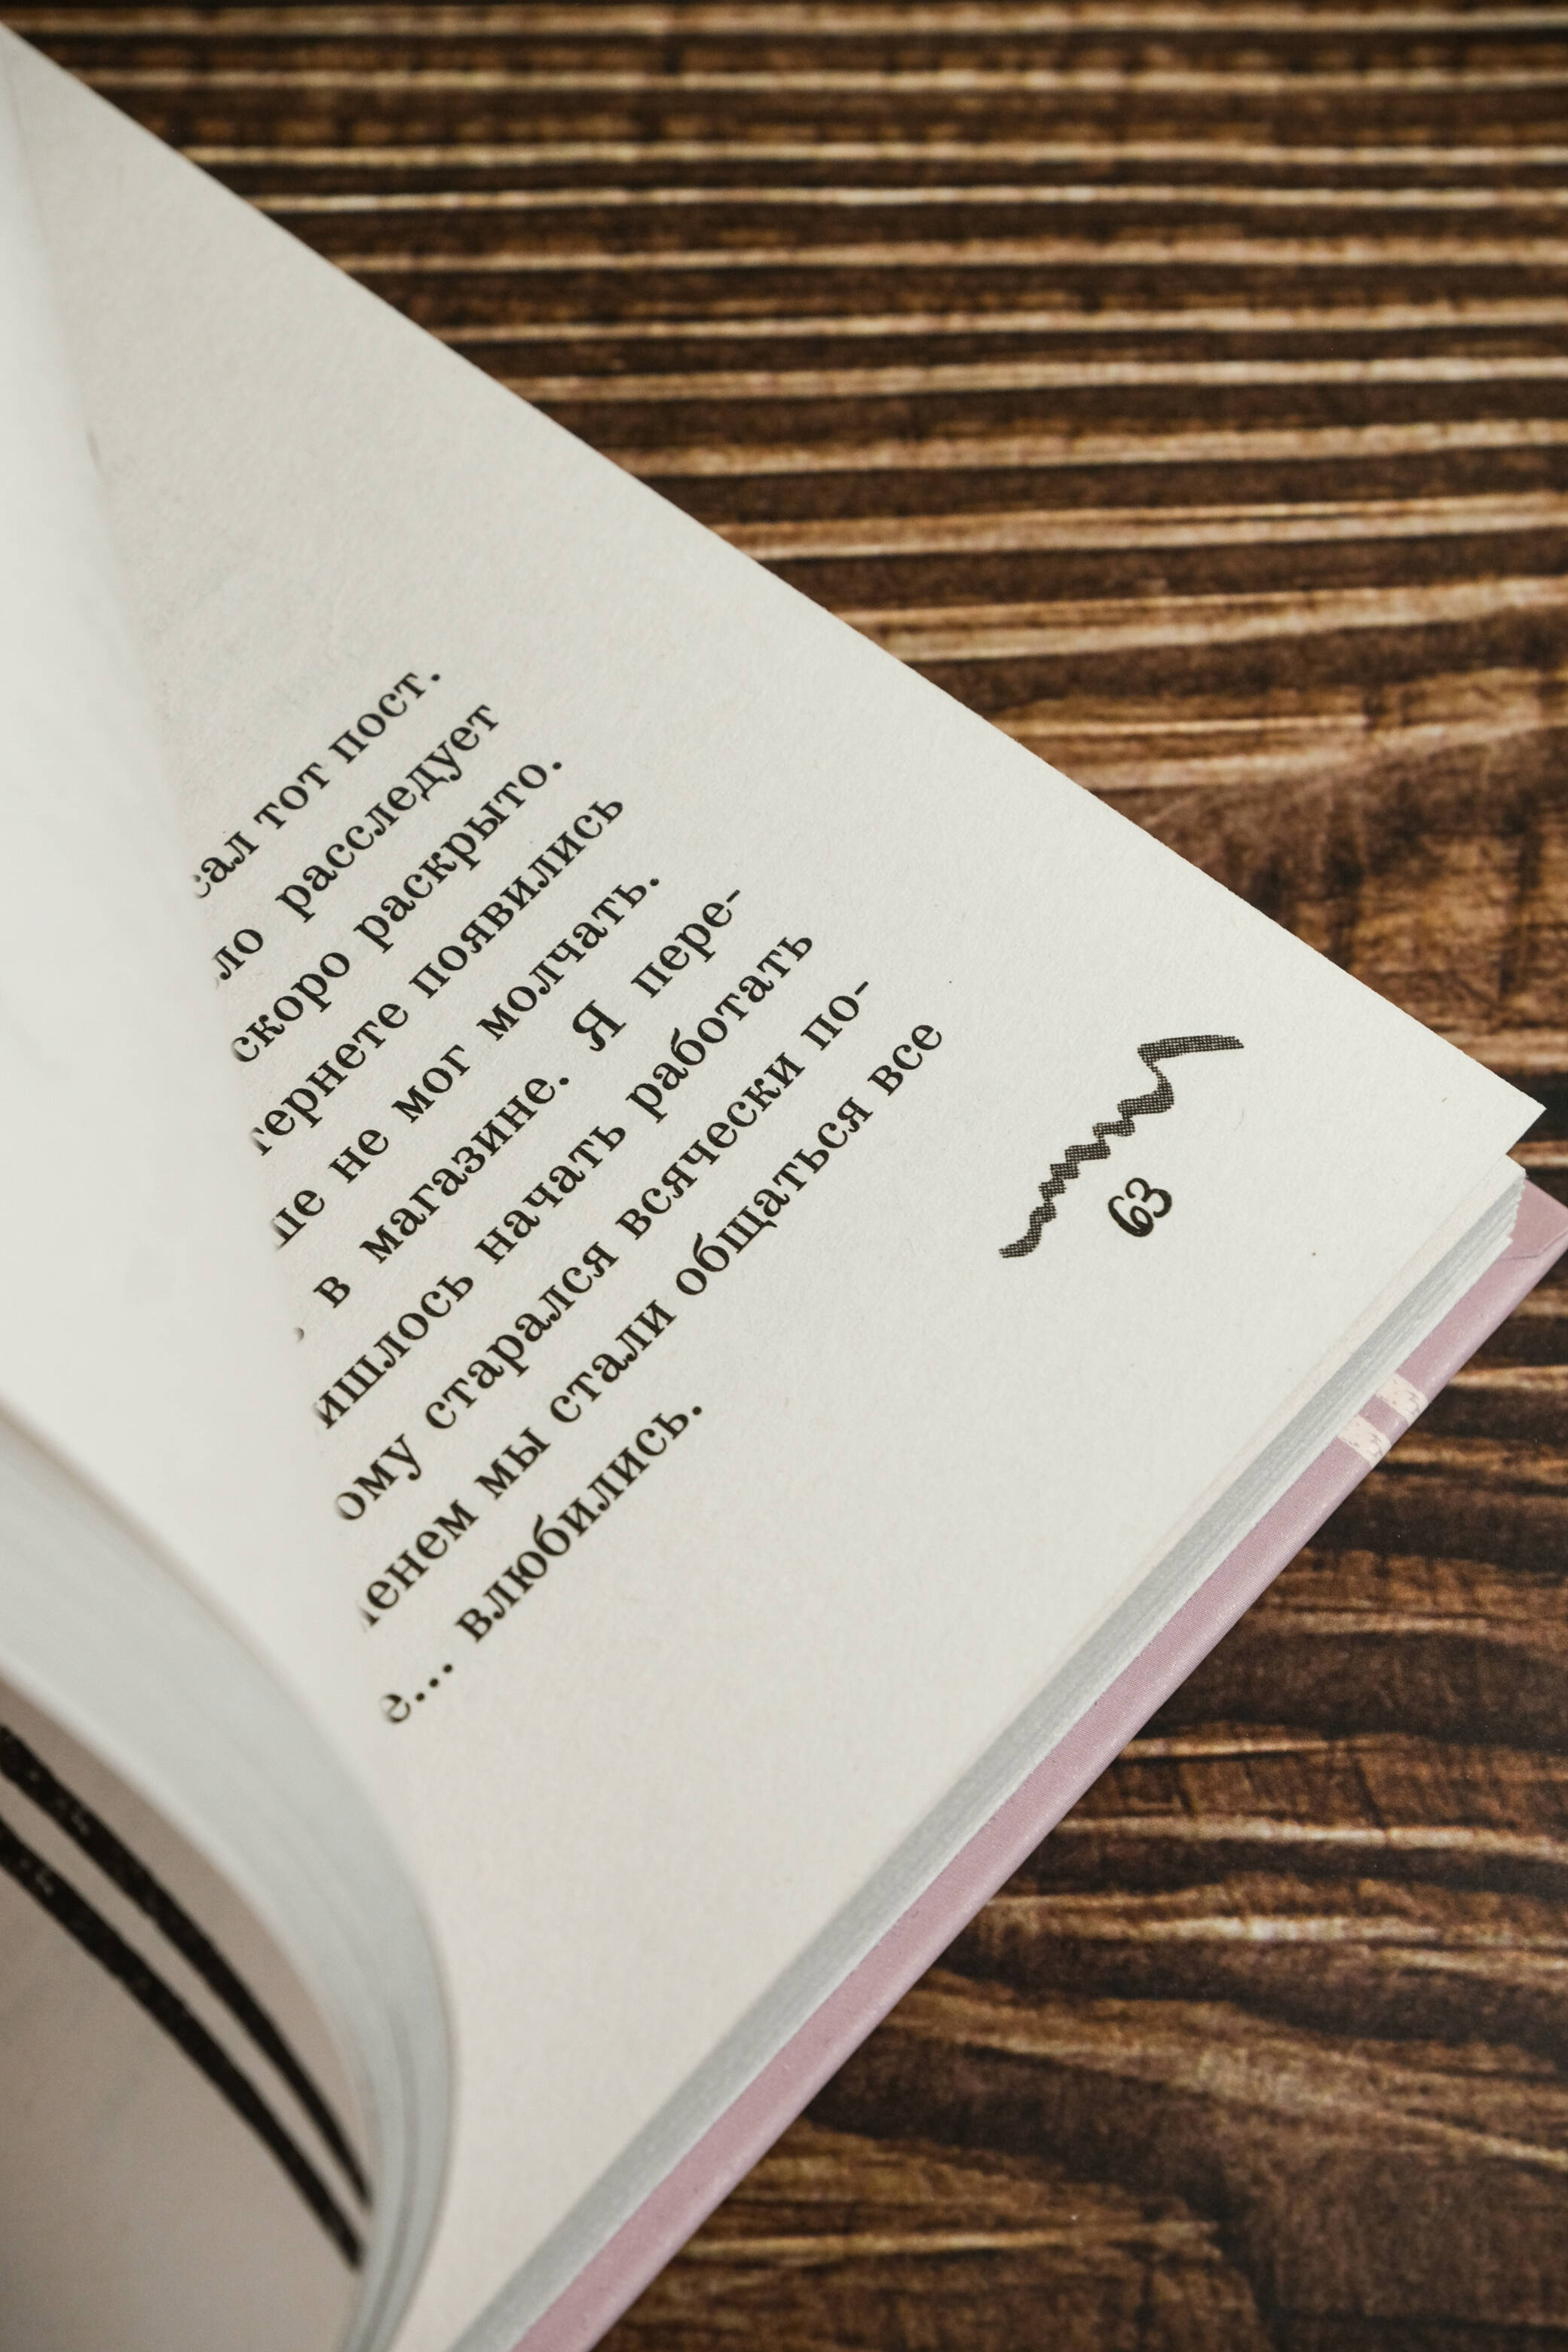 тот пост.
расследует
скоро раскрыто.
появились
не мог молчать.
в магазине. Я пере-
начать работать
старался всячески по-
мы стали общаться все
влюбились.
63